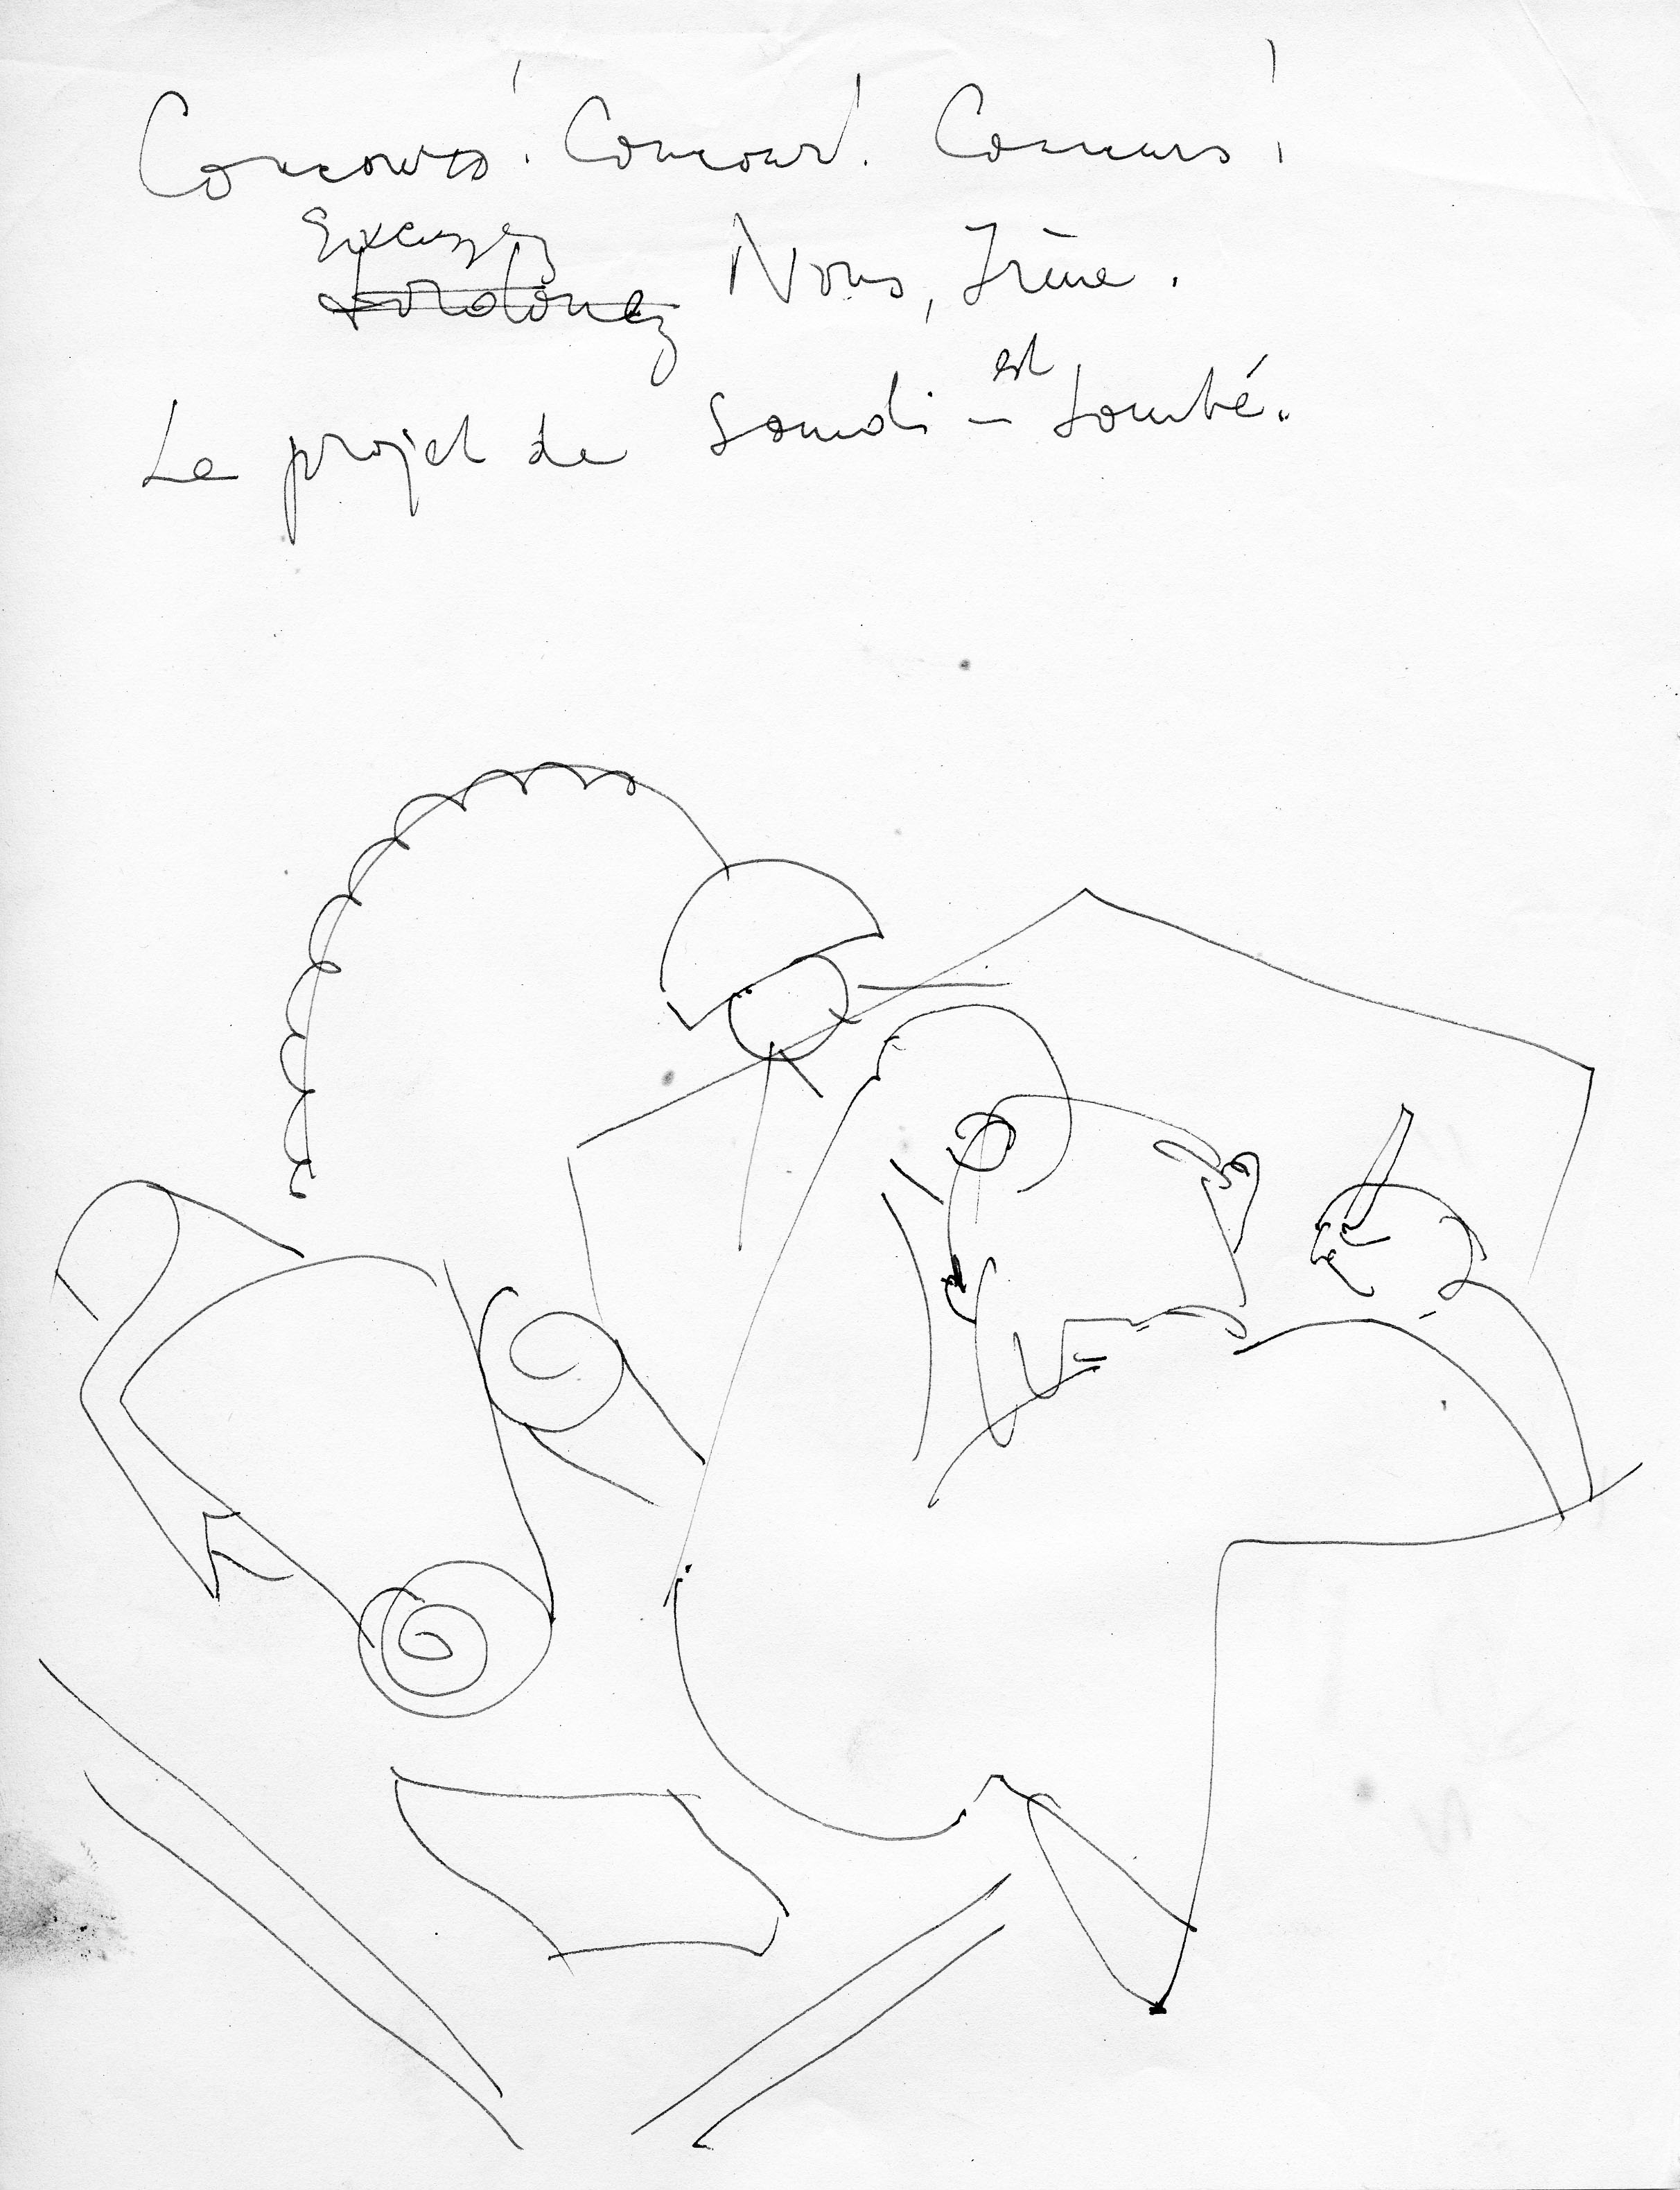 Concours! Concours! Concours!
Excusez
Pardonez Nous, Irène.
Le projet de Samdi est tombé.